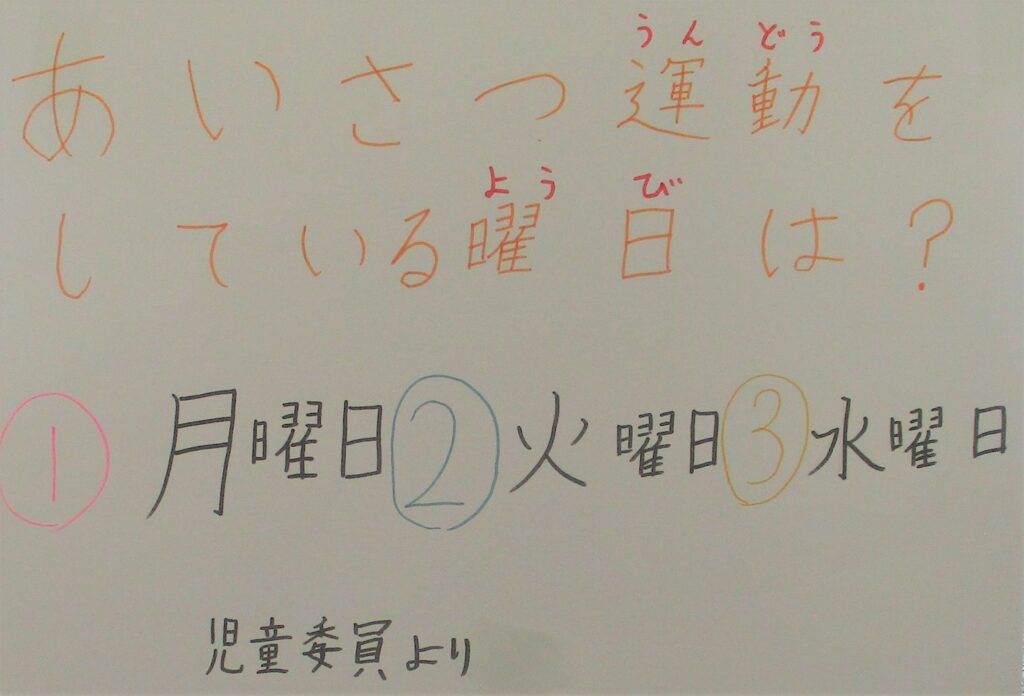 うんどう
あいさつ運動を
ようび
している曜日は?
① 月曜日 ② 火曜日 ③ 水曜日
児童委員より